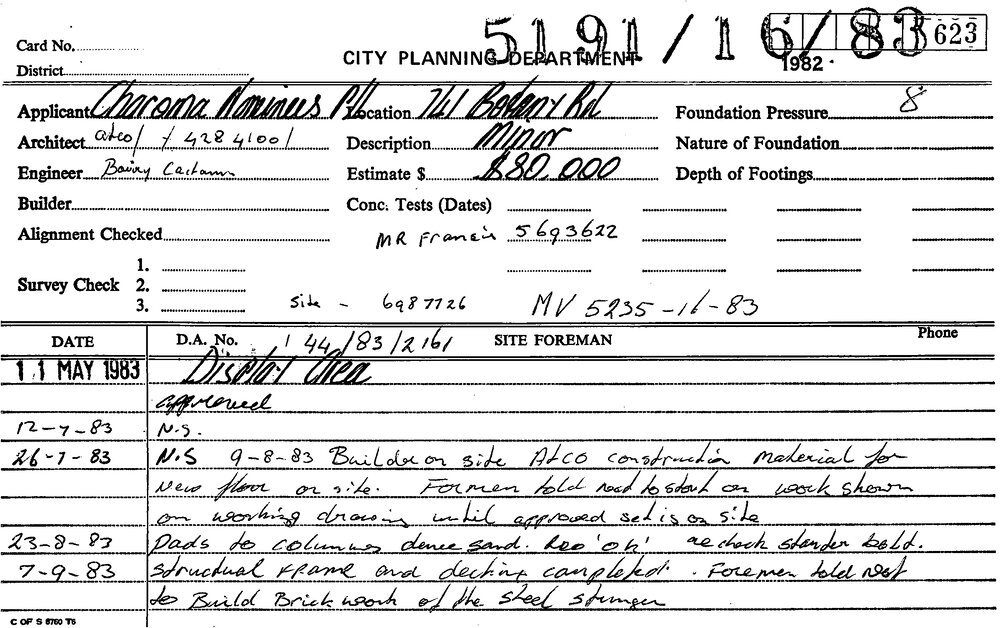 5191/16/83 623
Card No.
CITY PLANNING DEPARTMENT
1982
District
Applicant Charoma Nominees P/L Location 741 Botany Rd Foundation Pressure 8
Architect atco / 428 4100 / Description Minor Nature of Foundation
Engineer Barry Estimate $ $80,000 Depth of Footings
Builder Conc. Tests (Dates)
Alignment Checked MR Francis 5693622
1.
Survey Check 2.
3. Site - 6987726 MV 5235-16-83
DATE D.A. No. 44/83/2161 SITE FOREMAN Phone
11 MAY 1983 Display Area
approved
12-7-83 N.S.
26-7-83 N.S 9-8-83 Builder on site Atco construction material for
New floor on site. Formen told not to start on work shown
on working drawing until approved set is on site
23-8-83 Pads to columns dence sand. 'OK'
7-9-83 structural frame and decking completed. Foremen told not
to Build Brickwork of the steel stringer
C OF S 8760 T6